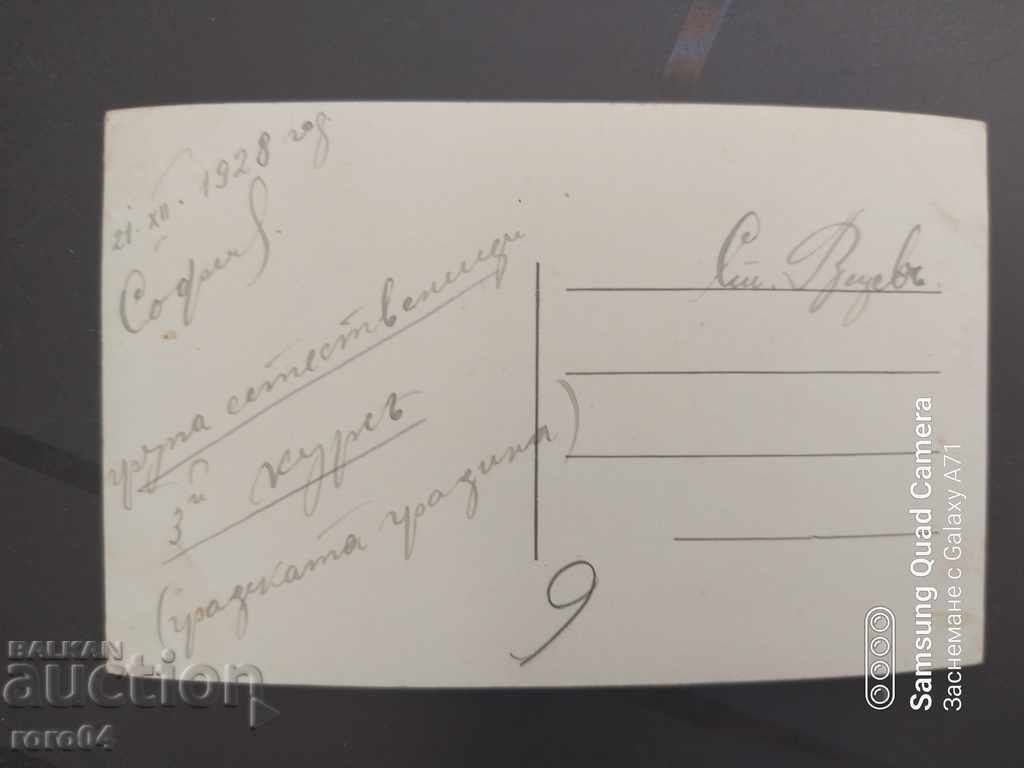 21. XII. 1928 год
София.
група естественици
3й курсъ
(градската градина)
Ст.
9
BALKAN
auction
roro04
Samsung Quad Camera
Заснемане с Galaxy A71